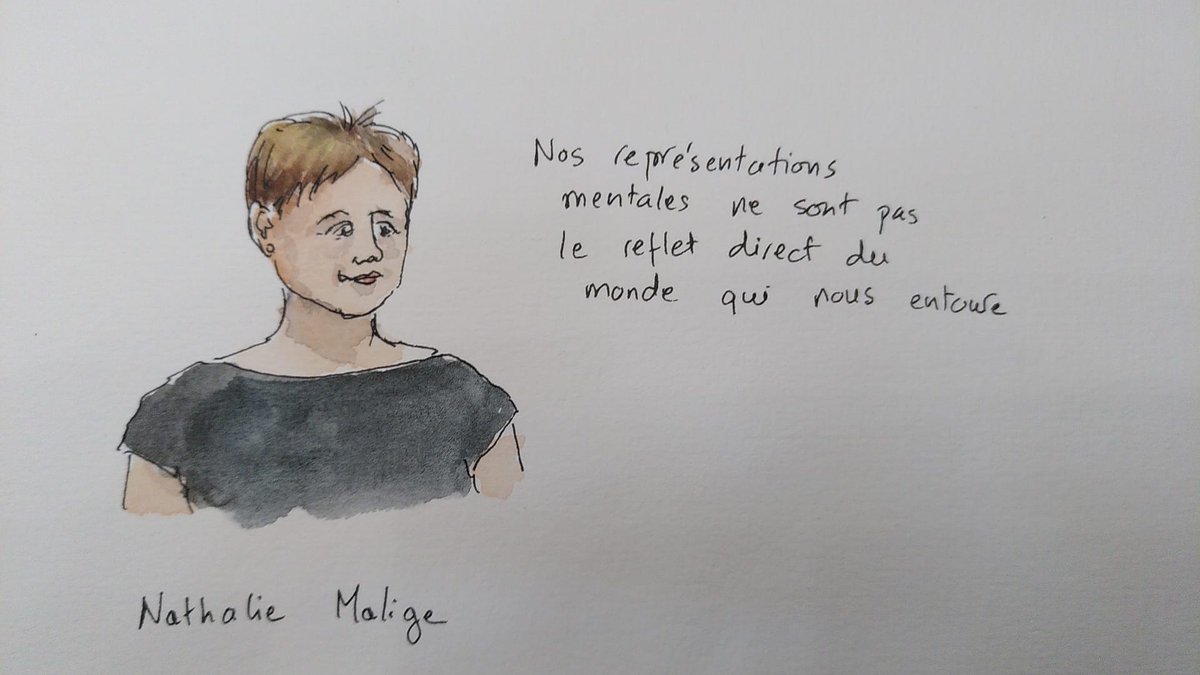 Nos représentations
mentales ne sont pas
le reflet direct du
monde qui nous entoure
Nathalie Malige